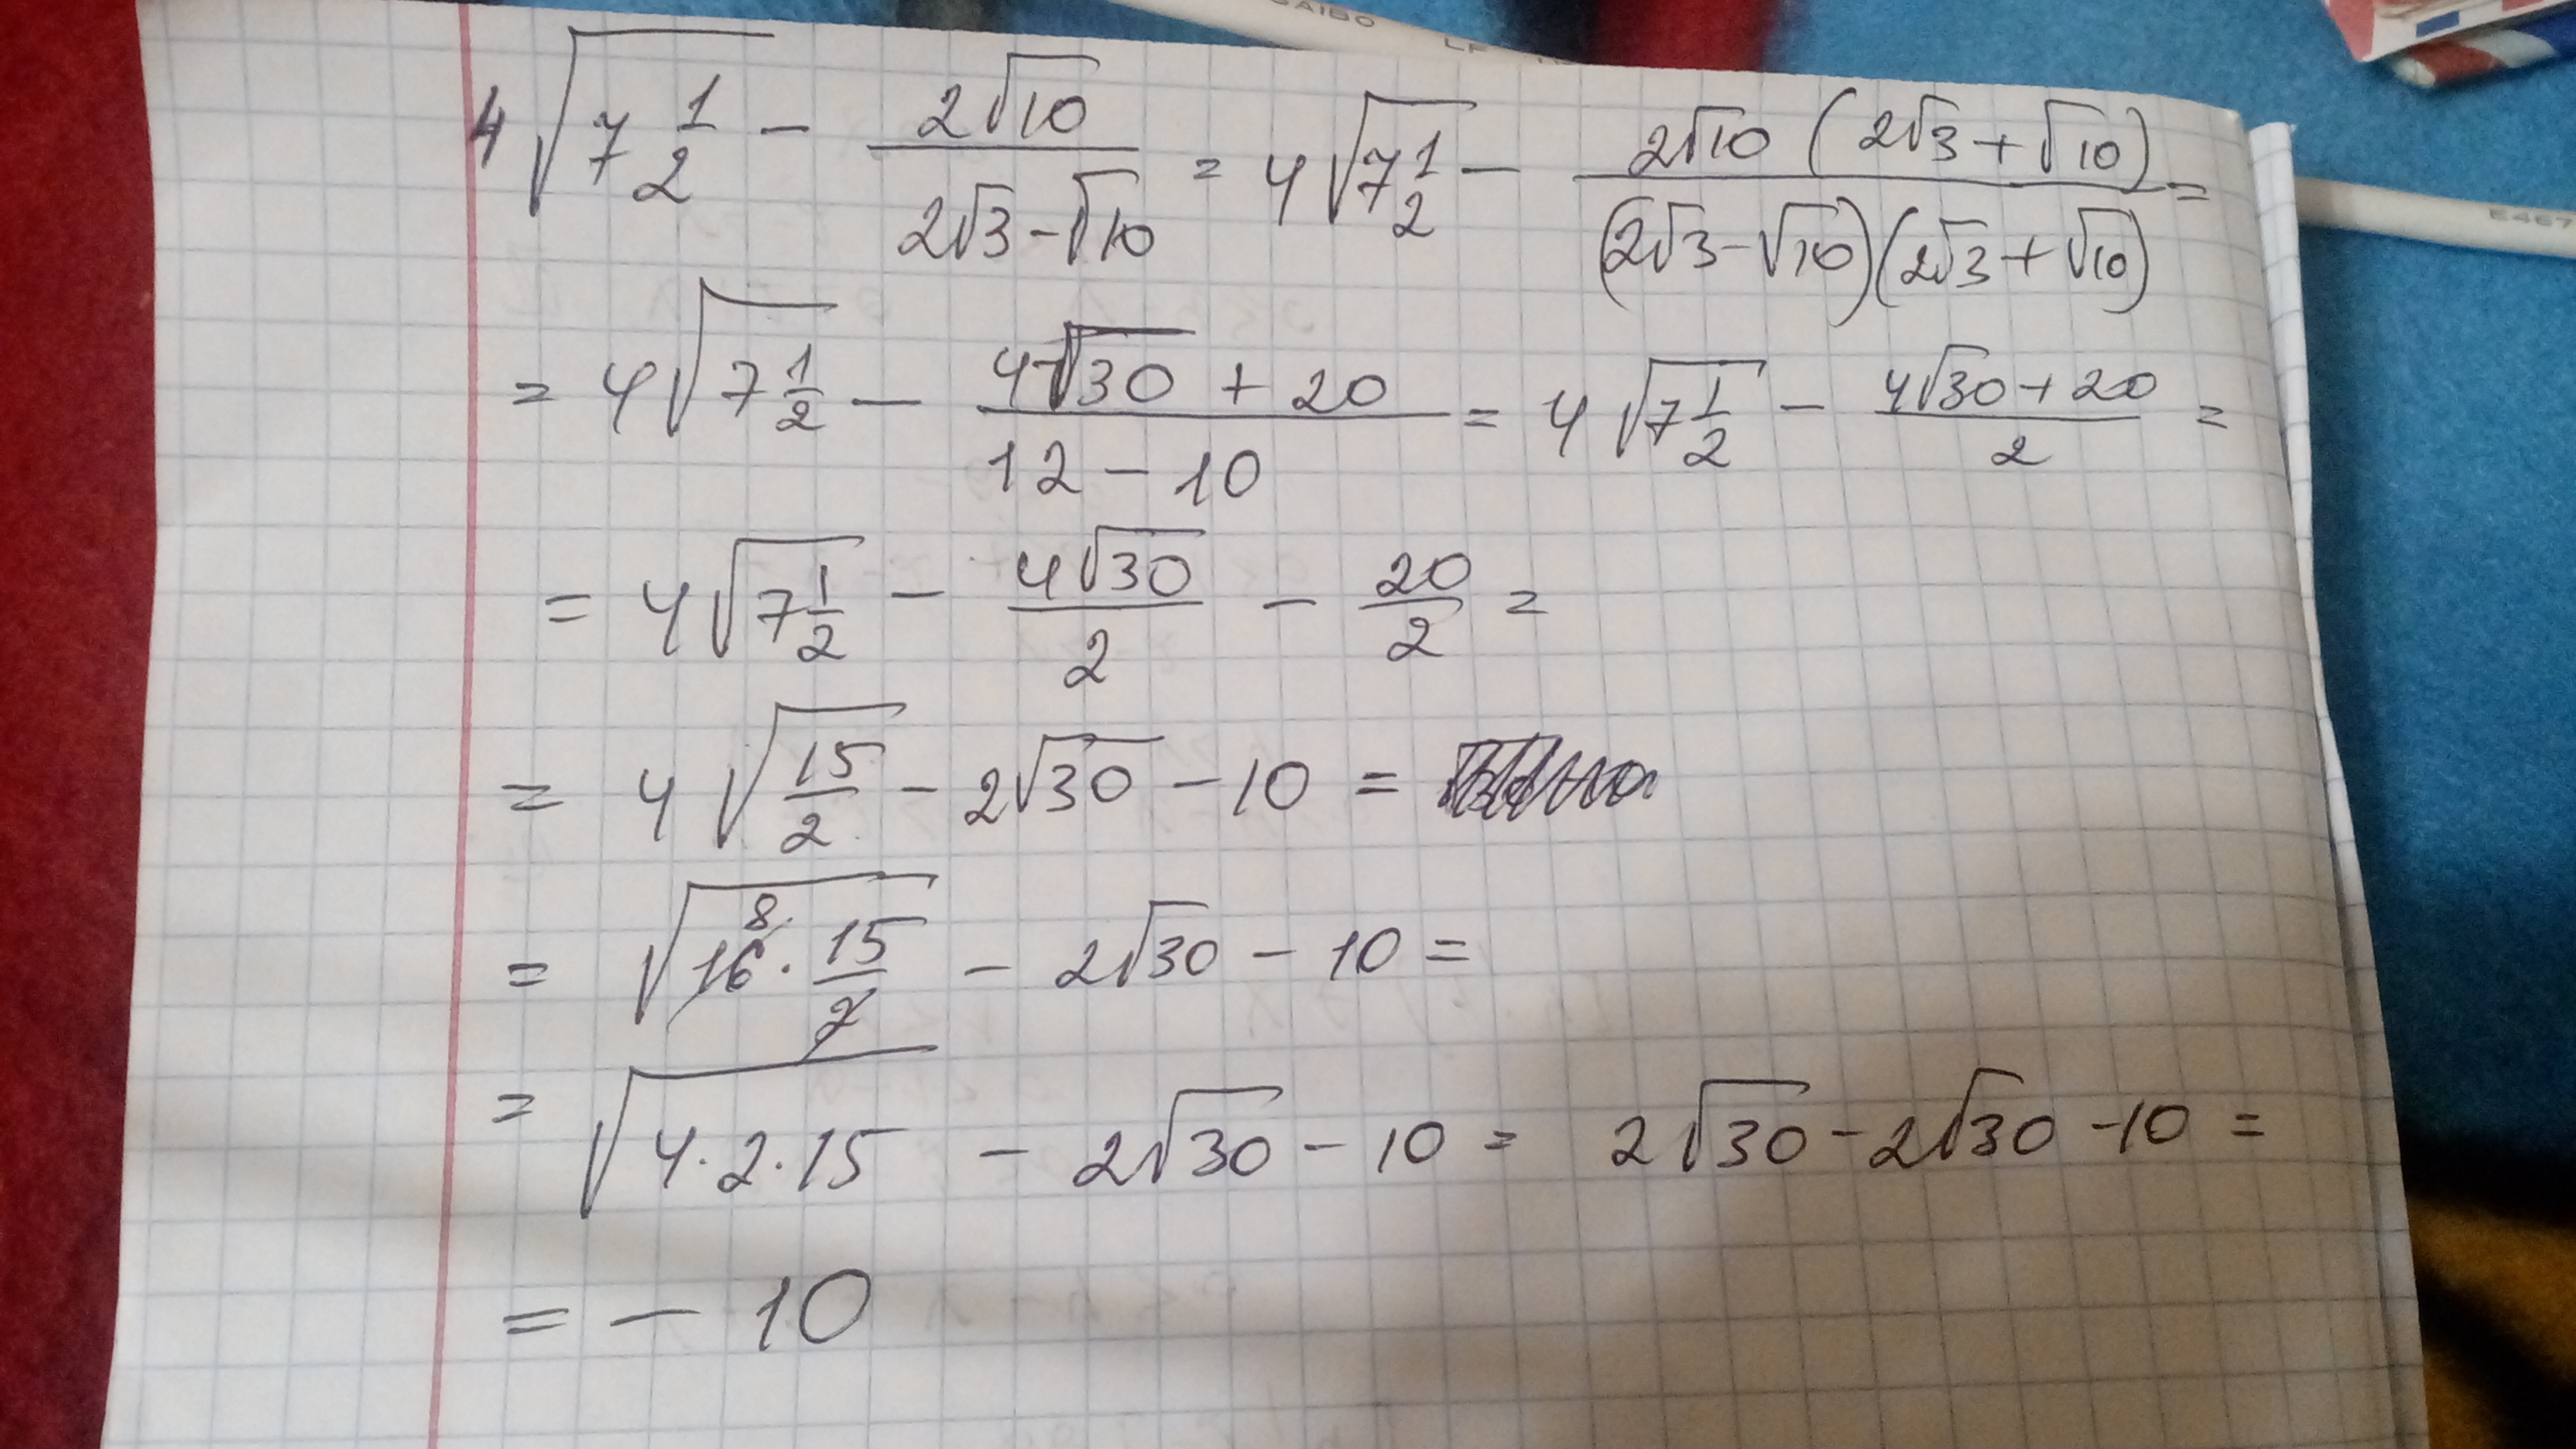 4√(7 1/2) - (2√10)/(2√3-√10) = 4√(7 1/2) - (2√10 (2√3+√10))/((2√3-√10)(2√3+√10)) =
= 4√(7 1/2) - (4√30 + 20)/(12-10) = 4√(7 1/2) - (4√30+20)/2 =
= 4√(7 1/2) - (4√30)/2 - 20/2 =
= 4√(15/2) - 2√30 - 10 =
= √(16 8 · 15/2) - 2√30 - 10 =
= √(4·2·15) - 2√30 - 10 = 2√30 - 2√30 - 10 =
= - 10
LF
E467